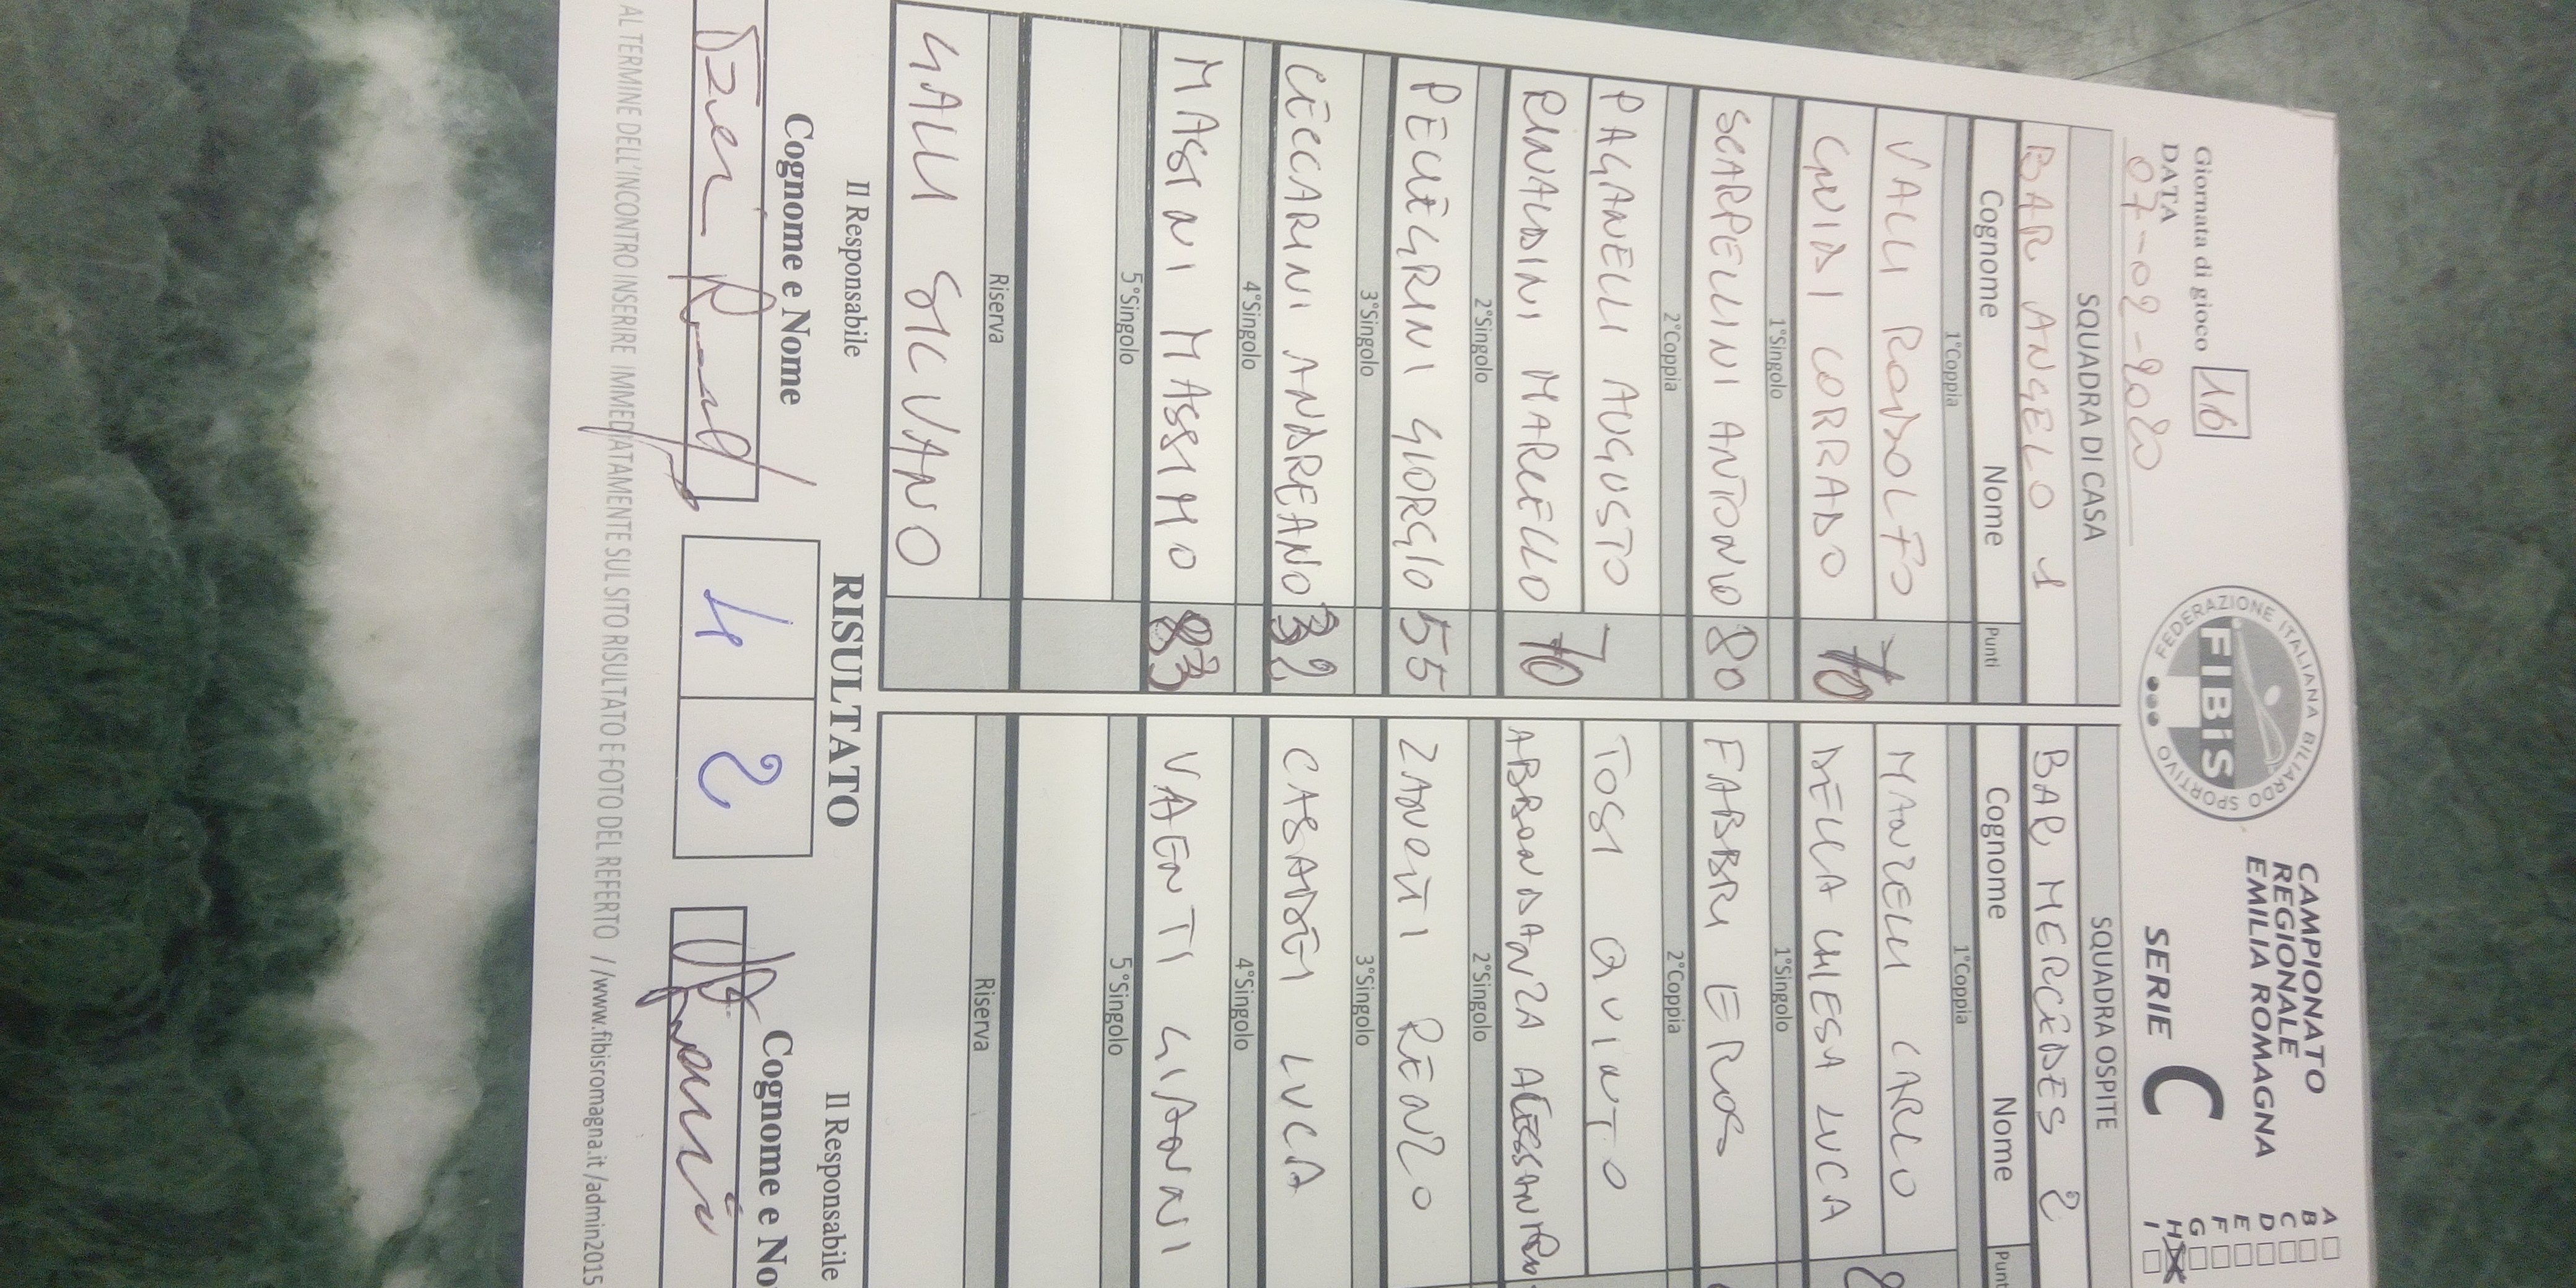 Giornata di gioco 16
DATA
07-02-2020
FEDERAZIONE ITALIANA BILIARDO SPORTIVO
FIBiS
CAMPIONATO
REGIONALE
EMILIA ROMAGNA
SERIE C
A
B
C
D
E
F
G
H
I
SQUADRA DI CASA
SQUADRA OSPITE
BAR ANGELO 1
BAR MERCEDES 2
Cognome Nome Punti
Cognome Nome Punt
1°Coppia
1°Coppia
VALLI RODOLFO
MANZELLI CARLO
GUIDI CORRADO 70
DELLA CHIESA LUCA
1°Singolo
1°Singolo
SCARPELLINI ANTONIO 80
FABBRI EROS
2°Coppia
2°Coppia
PAGANELLI AUGUSTO
TOSI QUINTO
RINALDINI MARCELLO 70
ABBONDANZA ALESSANDRO
2°Singolo
2°Singolo
PELLEGRINI GIORGIO 55
ZANOTTI RENZO
3°Singolo
3°Singolo
CECCARINI ANDREANO 32
CASADEI LUCA
4°Singolo
4°Singolo
MASINI MASSIMO 83
VAENTI GIANNI
5°Singolo
5°Singolo
Riserva
Riserva
GALLI SILVANO
Il Responsabile
RISULTATO
Il Responsabile
Cognome e Nome
Cognome e No
4 2
AL TERMINE DELL'INCONTRO INSERIRE IMMEDIATAMENTE SUL SITO RISULTATO E FOTO DEL REFERTO //www.fibisromagna.it/admin2015